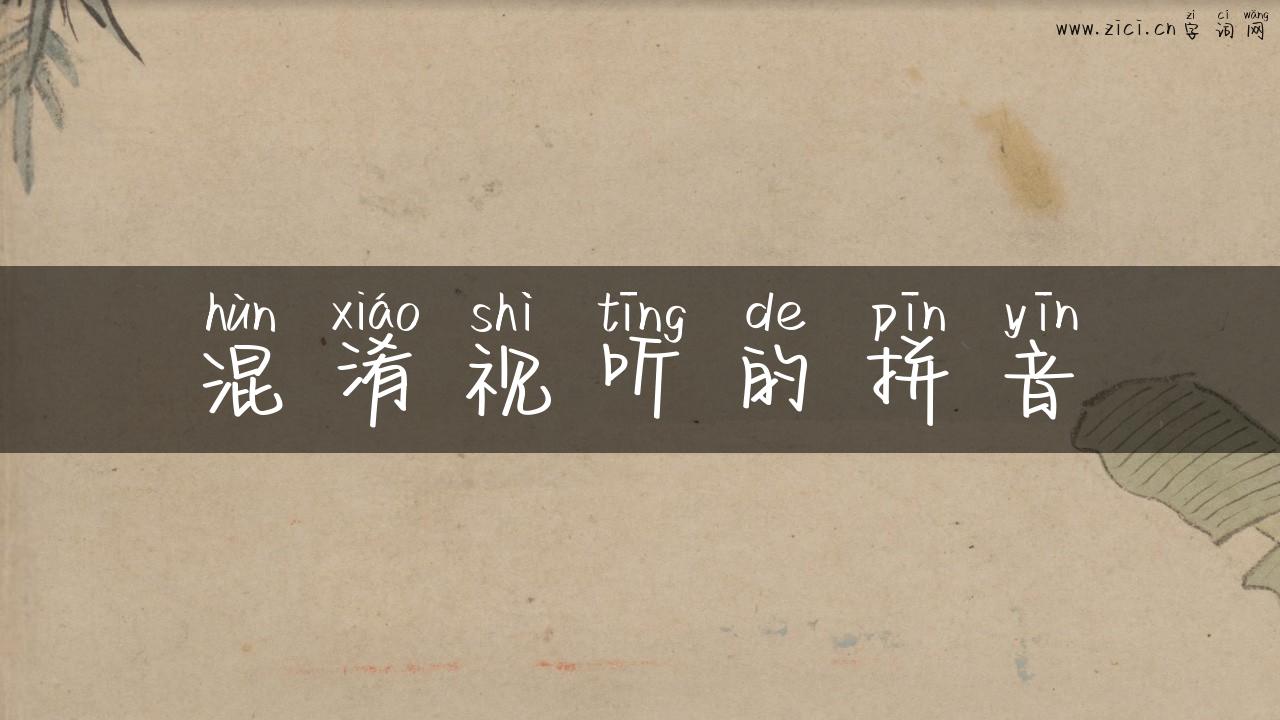 zì cí wǎng
www.zici.cn 字 词 网
hùn xiáo shì tīng de pīn yīn
混 淆 视 听 的 拼 音